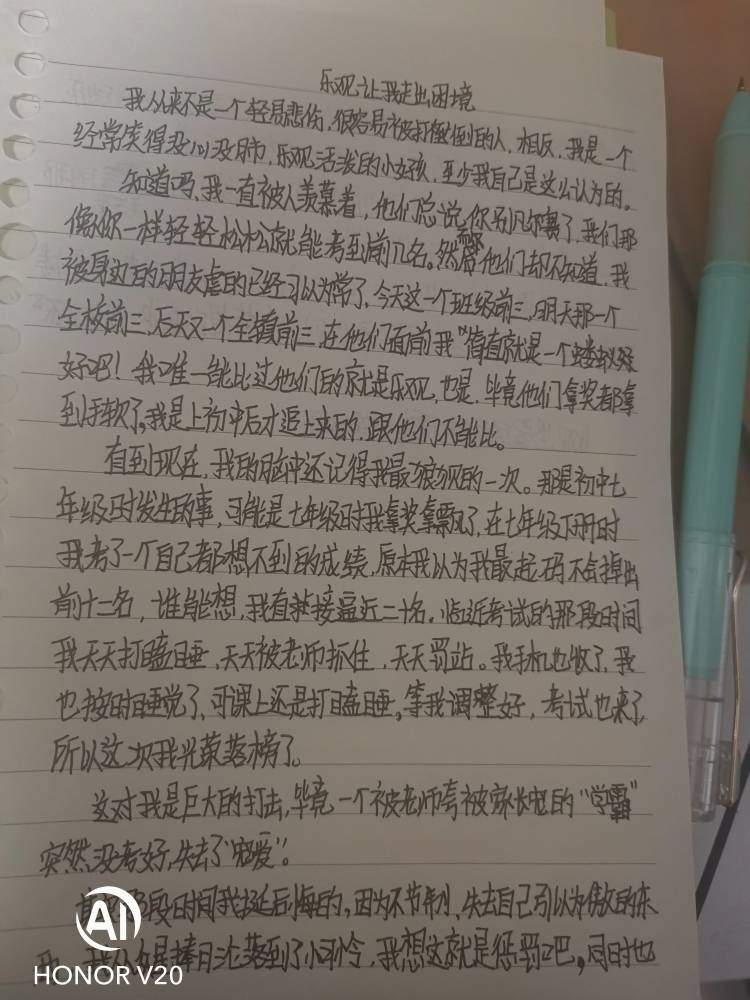 乐观让我走出困境
我从来不是一个轻易悲伤,很容易被打倒的人,相反,我是一个
经常笑得没心没肺,乐观活泼的小女孩,至少我自己是这么认为的。
知道吗,我一直被人羡慕着,他们总说,你别凡尔赛了,我们那
像你一样轻轻松松就能考到前几名。然而他们却不知道,我
被身边的朋友虐的已经习以为常了,今天这一个班级前三,明天那一个
全校前三,后天又一个全镇前三,在他们面前我"简直就是一个蝼蚁好
好吧!我唯一能比过他们的就是乐观,也是,毕竟他们拿奖都拿
到手软了,我是上初中后才追上来的,跟他们不能比。
直到现在,我的脑中还记得我最狼狈的一次。那是初中七
年级时发生的事,可能是七年级时我拿奖拿飘了,在七年级下册时
我考了一个自己都想不到的成绩,原本我以为我最起码不会掉出
前十二名,谁能想,我直接逼近二十名。临近考试的那段时间
我天天打瞌睡,天天被老师抓住,天天罚站。我手机也收了,我
也按时睡觉了,可课上还是打瞌睡。等我调整好,考试也来了,
所以这次我光荣落榜了。
这对我是巨大的打击,毕竟一个被老师夸被家长宠的"学霸"
突然没考好,失去了"宠爱"。
段时间我挺后悔的,因为不节制,失去自己引以为傲的东
捧月沦落到了小可怜,我想这就是惩罚吧。同时也
AI
HONOR V20